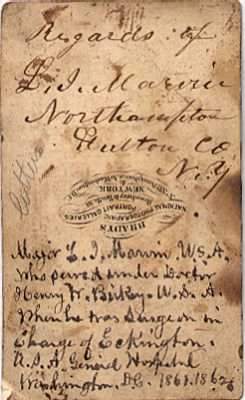 Regards of
L. I. Marvin
Northampton
Fulton Co
N.Y
BRADY'S
NATIONAL PHOTOGRAPHIC
PORTRAIT GALLERIES
NEW YORK
Major L. I. Marvin. U.S.A.
Who served under Doctor
Henry W. U.S.A.
When he was Surgeon in
Charge of Eckington.
U.S.A General Hospital
Washington, D.C. 1861.1862